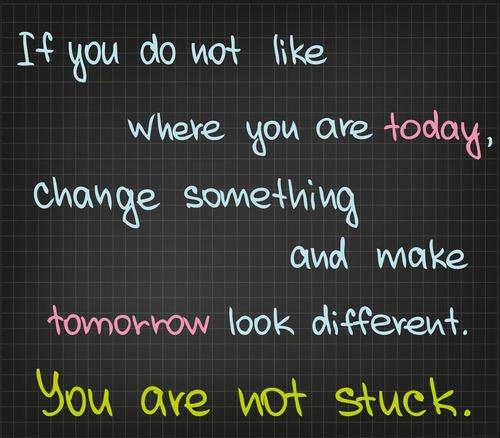 If you do not like
where you are today,
change something
and make
tomorrow look different.
You are not stuck.